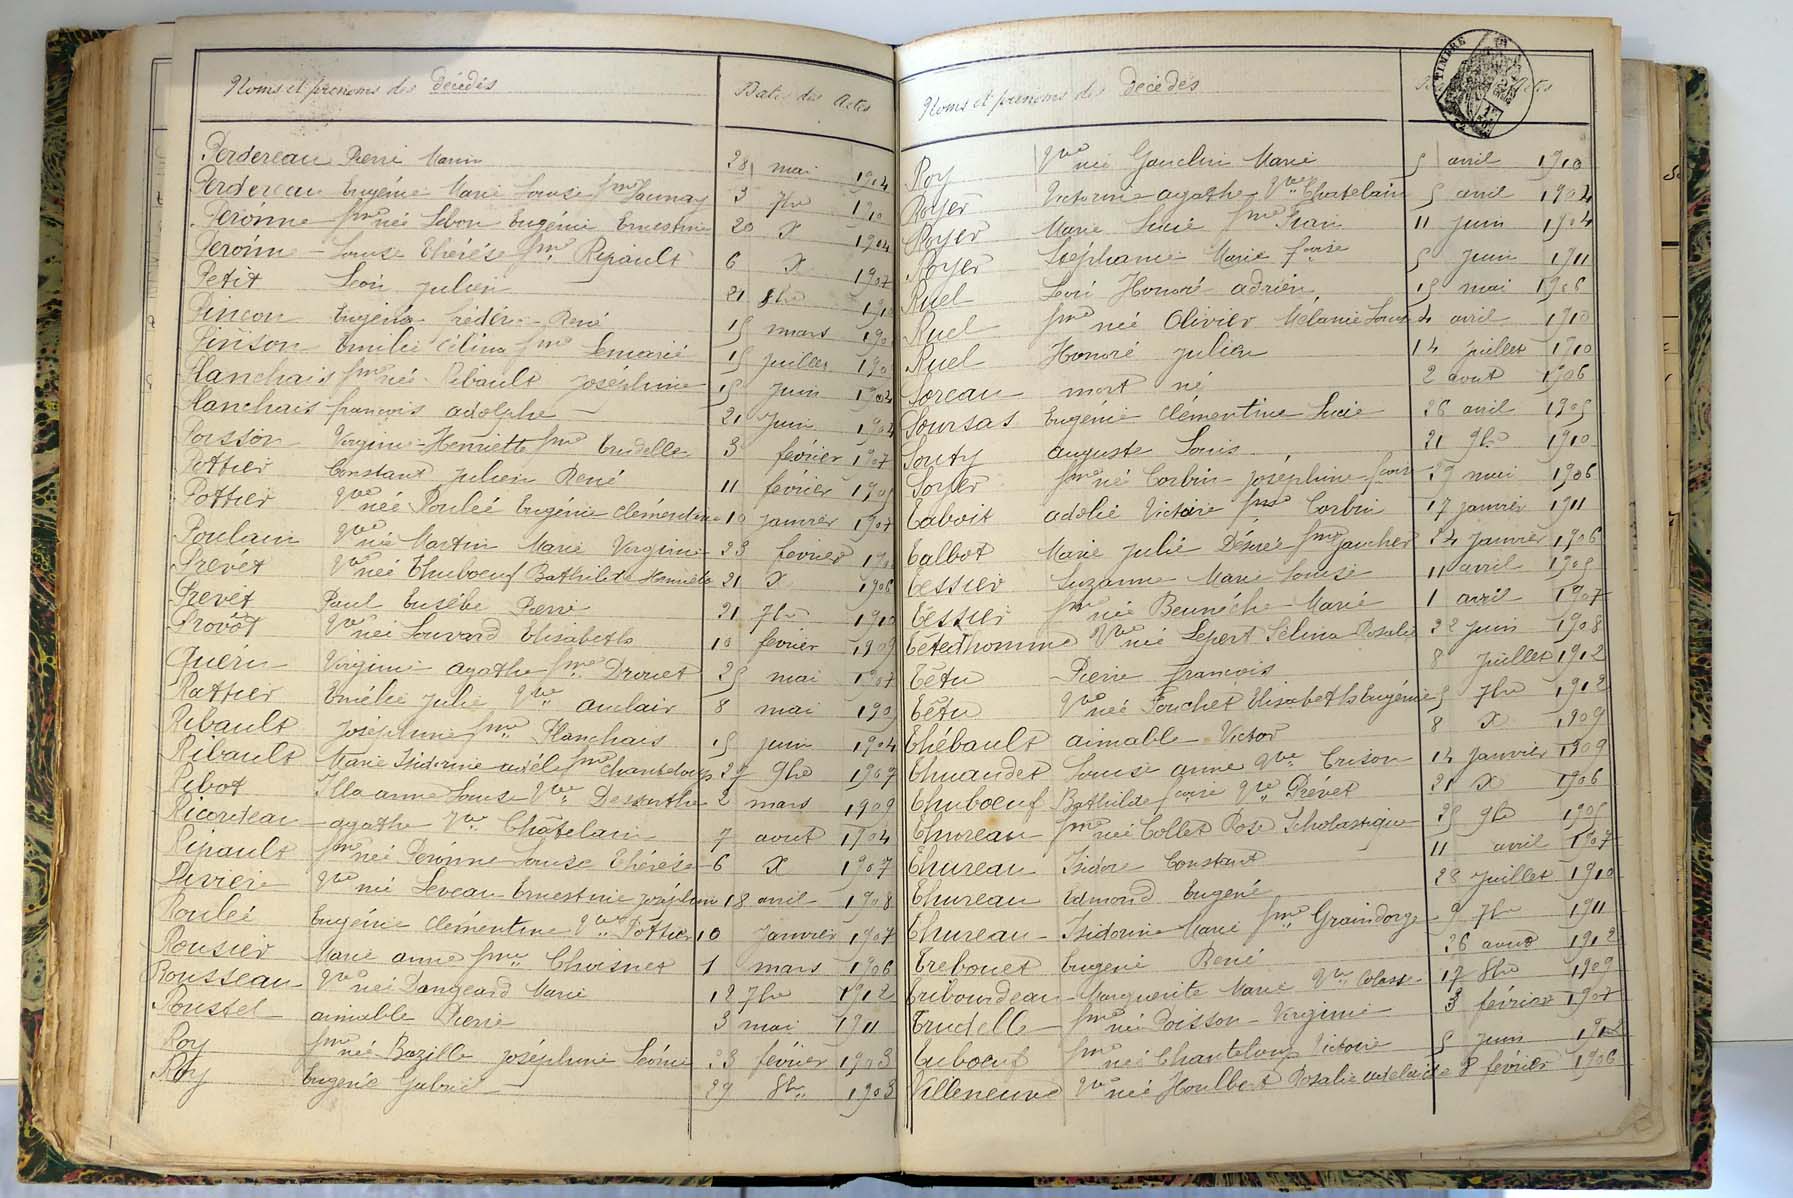 Noms et prénoms des décédés Dates des Actes
Perdereau Pierre Marin 28 mai 1904
Perdereau Eugénie Marie Louise fme Launay 3 7bre 1910
Peronne fme née Lebon Eugénie Ernestine 20 X 1904
Peronne Louise Thérèse fme Ripault 6 X 1907
Petit Léon Julien 21 8bre 1910
Pinçon Eugène René 15 mars 190
Pinson Emilie Célina fme Lemarié 15 juillet 190
Planchais fme née Ribault Joséphine 15 juin 1904
Planchais françois adolphe 21 juin 1904
Poisson Virginie Henriette fme Trudelle 3 février 1907
Pottier Constant Julien René 11 février 1905
Pottier Vve née Poulée Eugénie Clémentine 10 janvier 1907
Poulain Vve née Martin Marie Virginie 23 février 190
Prevêt Vve née Thuboeuf Bathilde Henriette 21 X 1906
Prevêt Paul Eusèbe Pierre 21 7bre 1910
Provôt Vve née Louvard Elisabeth 10 fevrier 1909
Quérin Virginie agathe fme Drouet 25 mai 1907
Rattier Emélie Julie Vve auclair 8 mai 190
Ribault Joséphine fme Planchais 15 juin 1904
Ribault Marie Isidorine adèle fme Chanteloup 29 9bre 1907
Ribot anne Louise Vve 2 mars 1909
Ricordeau agathe Vve Châtelain 7 aout 1904
Ripault fme née Péronne Louise Thérèse 6 X 1907
Vve née Leveau Ernestine Joséphine 18 avril 1908
Roulée Eugénie Clémentine Vve Pottier 10 janvier 1907
Rousier Marie anne fme Choisnet 1 mars 1906
Rousseau Vve née Dangeard Marie 12 7bre 1912
Roussel aimable Pierre 3 mai 1911
Roy fme née Bazille Joséphine Léonie 23 février 1903
Roy Eugène Gabriel 29 8bre 1903
Noms et prénoms des décédés Actes
TIMBRE
Roy Vve née Gauclin Marie 5 avril 1910
Royer Victorine agathe Vve Chatelain 5 avril 1904
Royer Marie Lucie fme 11 juin 1904
Royer Stéphanie Marie fçoise 5 juin 1911
Ruel Léon Honoré adrien 15 mai 1906
Ruel fme née Olivier Mélanie Louise 4 avril 1910
Ruel Honoré Julien 14 juillet 1910
Soreau mort né 2 aout 1906
Soursas Eugénie Clémentine Lucie 26 avril 1905
Souty auguste Louis 21 9bre 1910
Soyer fme née Corbin Joséphine fçoise 29 mai 1906
Taboit adélie Victoire fme Corbin 17 janvier 1911
Talbot Marie Julie Désirée fme Jancher 24 janvier 1906
Tessier Suzanne Marie Louise 11 avril 1905
Tessier fme née Beunêche Marie 1 avril 1907
Têtedhomme Vve née Lepert Sélina Rosalie 22 juin 1908
Têtu Pierre François 8 juillet 1912
Têtu Vve née Fouchet Elisabeth Eugénie 5 7bre 1912
Thébault aimable Victor 8 X 1909
Thuaudet Louise anne Vve Crison 14 janvier 1909
Thuboeuf Bathilde fçoise Vve Prévet 21 X 1906
Thureau fme née Collet Rose Scholastique 25 9bre 1905
Thureau Isidore Constant 11 avril 1907
Thureau Edmond Eugène 28 juillet 1910
Thureau Isidorine Marie fme Graindorge 9 7bre 1911
Trebouet Eugène René 26 aout 1912
Tribourdeau Marguerite Marie Vve 17 8bre 1909
Trudelle fme née Poisson Virginie 3 février 1907
Tuboeuf fme née Chanteloup Victoire 5 juin 1912
Villeneuve Vve née Houlbert Rosalie adelaïde 8 février 1906